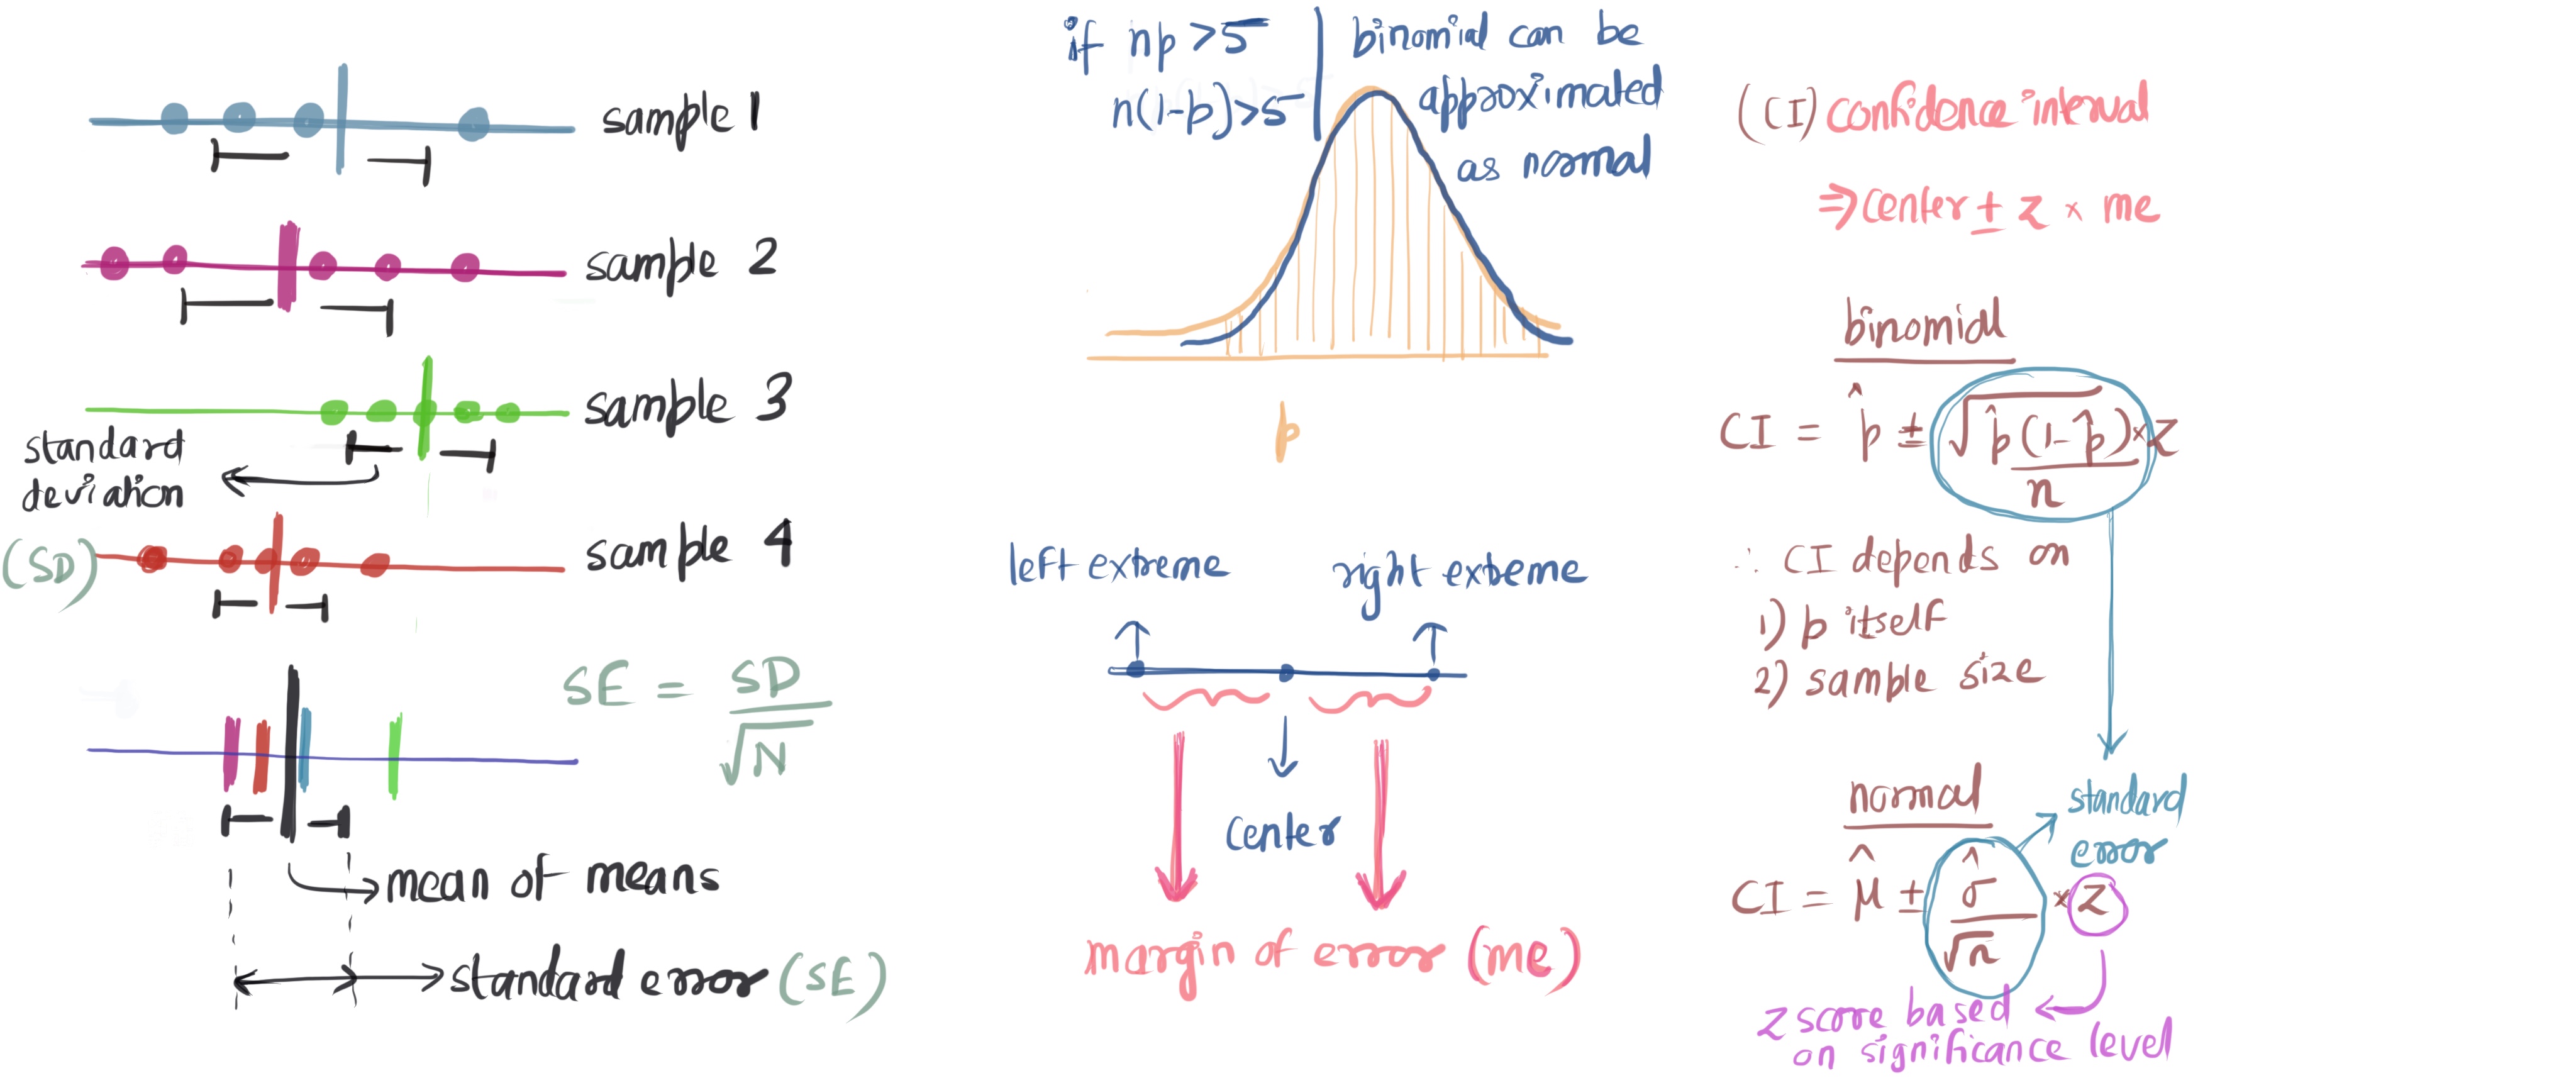 sample 1
sample 2
sample 3
standard
deviation
(SD)
sample 4
SE = SD
√N
mean of means
standard error (SE)
if np >5
n(1-p)>5
binomial can be
approximated
as normal
p
left extreme
right exteme
center
margin of error (me)
(CI) confidence interval
⇒ center ± z × me
binomial
CI = p̂ ± √p̂(1-p̂) × z
n
∴ CI depends on
1) p itself
2) sample size
normal
standard
error
CI = μ̂ ± σ̂ × z
√n
z score based
on significance level